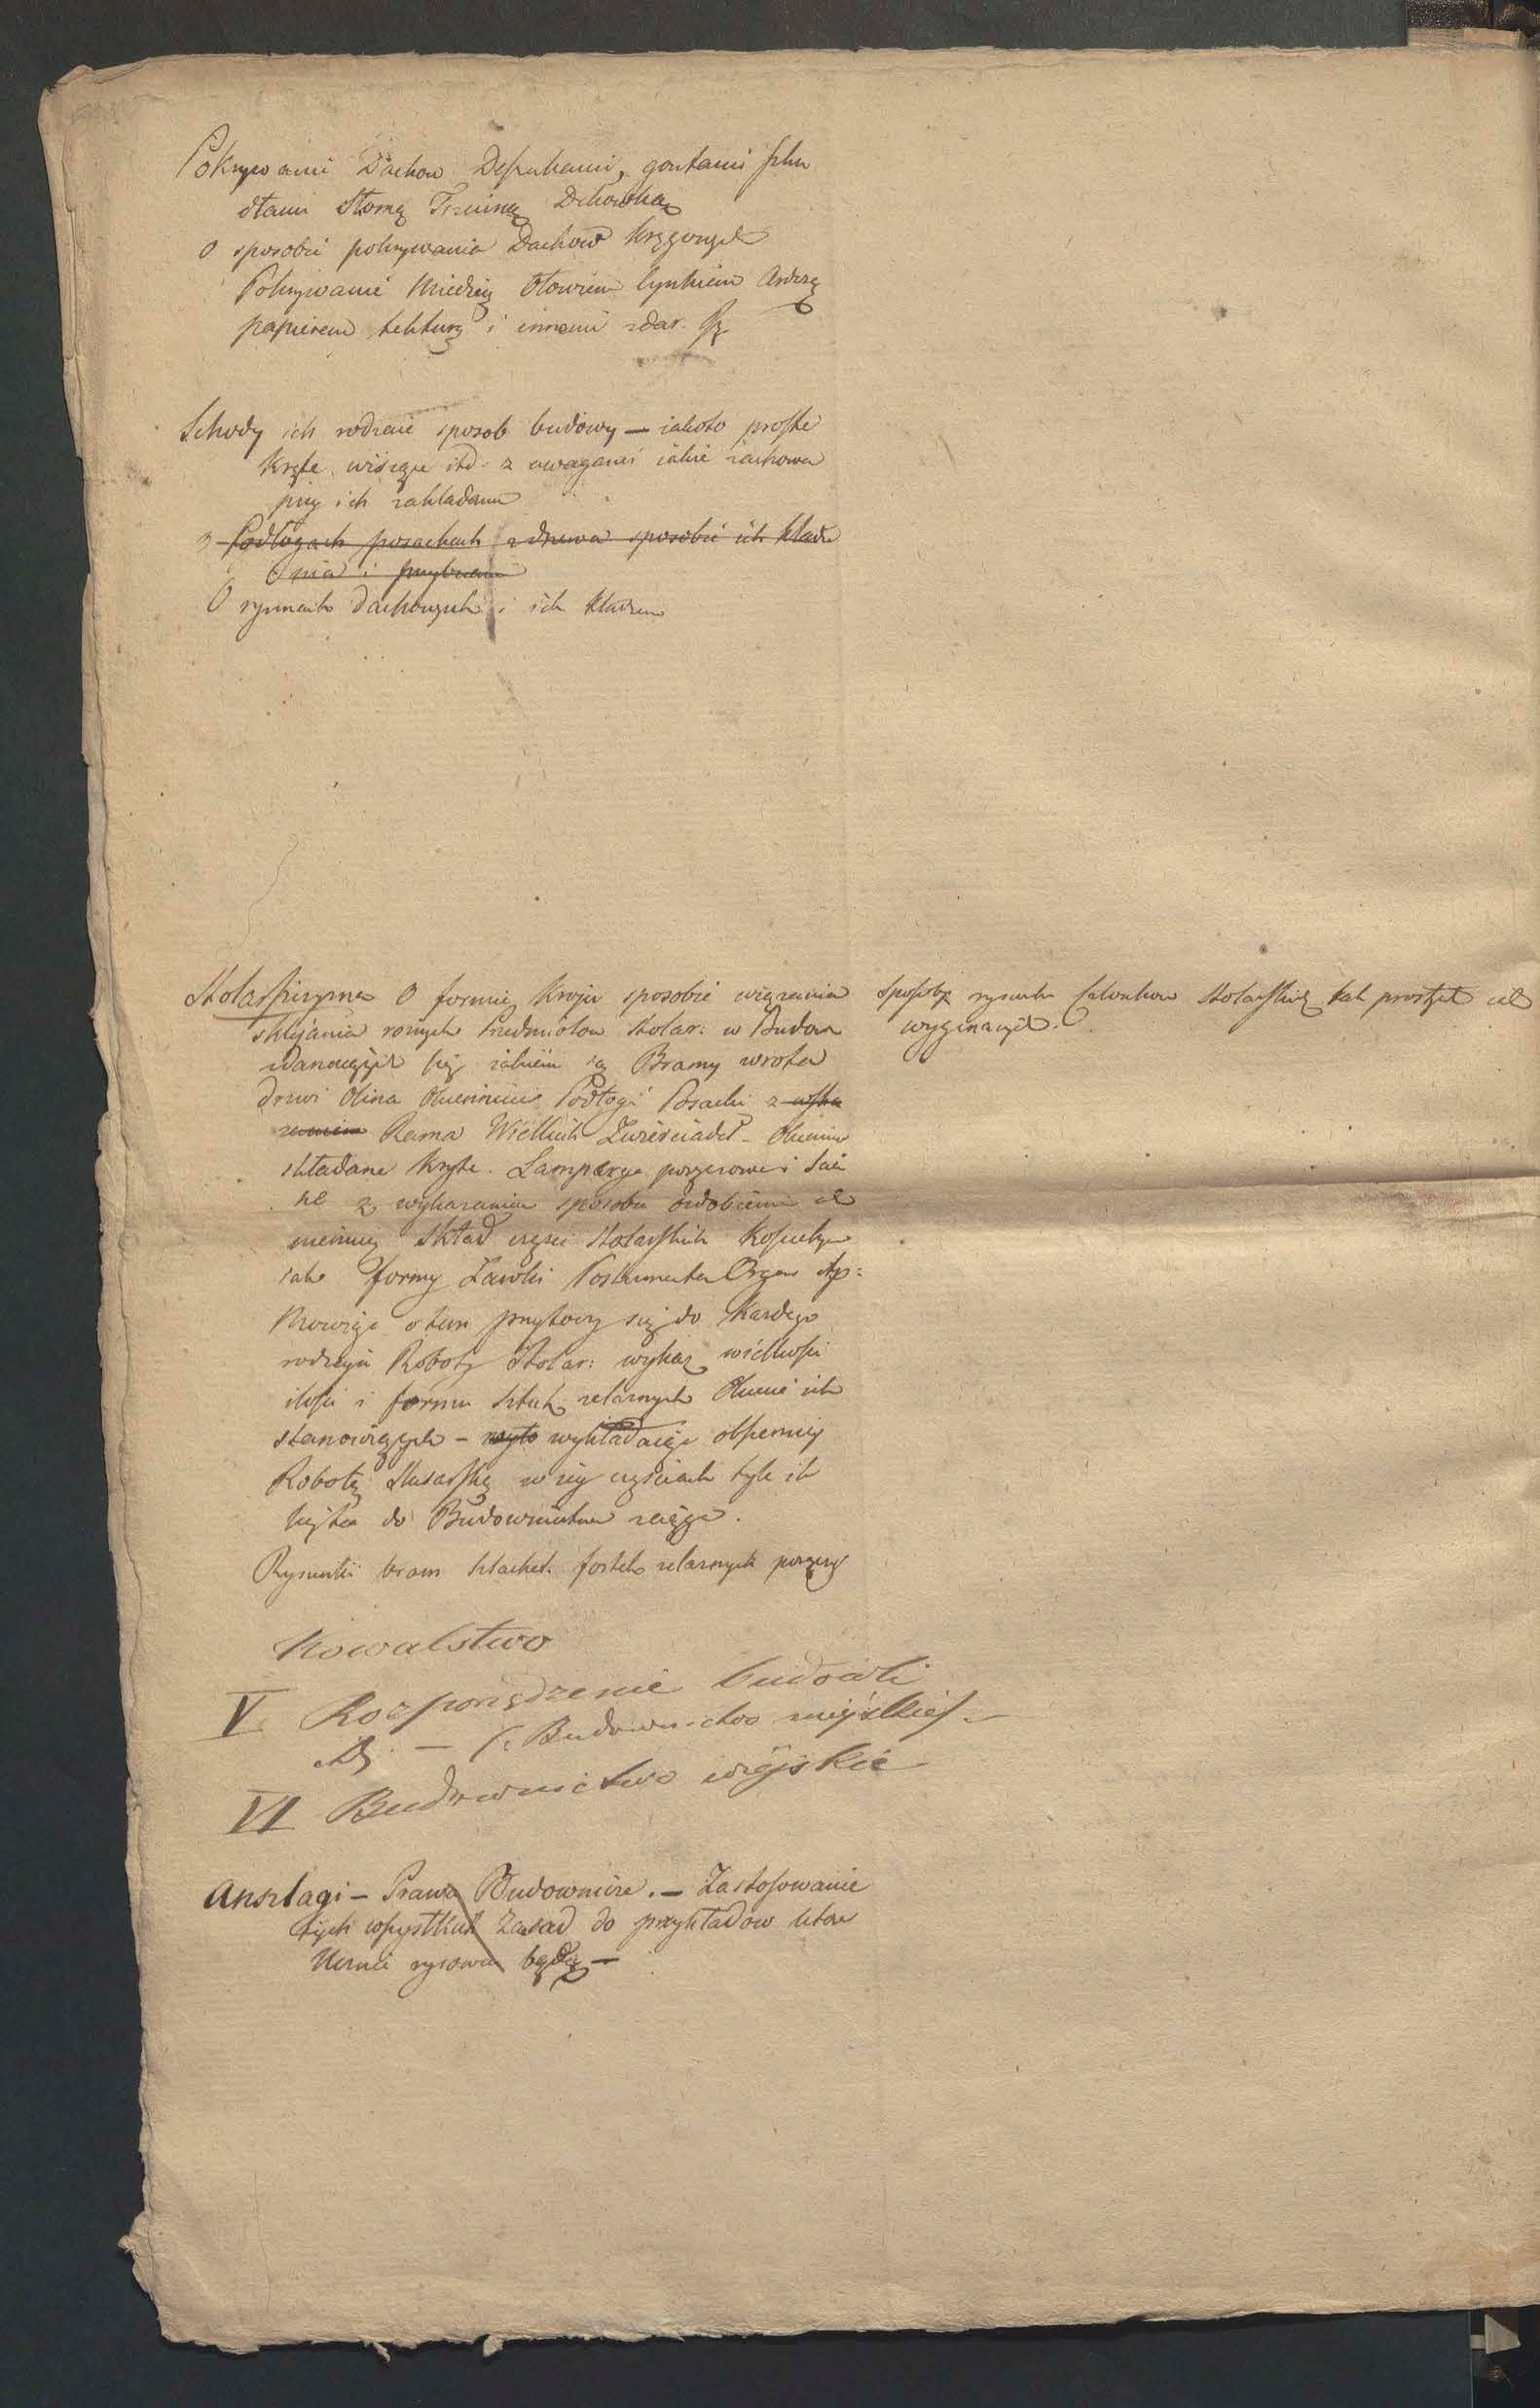 Pokrywanie Dachow Deskami, gontami szku
dłami Słomą Trzciną Dchowką
O sposobie pokrywania Dachow krągłych
Pokrywanie Miedzią Ołowiem Cynkiem
papierem, tekturą i innemi
Schody ich rodzaie sposob budowy — iakoto proste
kręte wiszące itd: z uwagami iakie zachowa
przy ich zakładaniu
Podłogach posackach z drzewa sposobie ich kłade
nia i
O rynnach dachowych i ich kładzen
Stolarszczyzna O formie kroju sposobie wiązania
sklejania roznych Przedmiotow stolar: w Budow
zdarzaiących się iakiemi są Bramy wrota
drzwi Okna Okiennice Podłogi Posacki z
Rama Wielkich Zwierciadeł – Okienni
składane kryte. Lamperye i
z wykazaniem sposobu ozdobienia
Skład części stolarskich
iako formy Ławki Postumenta Organ itp:
Mowiąc o tem przytoczy się do każdego
rodzaju Roboty Stolar: wykaz wielkości
ilości i form sztuk zelaznych Okucie ich
stanowiących – wykładaiąc obszerniej
Robotę Slusarską w iey częściach tyle ile
się ta do Budownictwa ściąga.
Rysunki bram sztachet fortek zelaznych poręczy
sposoby rysunku członkow stolarskich tak prostych iak
wyginanych.
Kowalstwo
V Rozporządzenie budowli
— (: Budownictwo mieyskie) –
VI Budownictwo wiejskie
Anszlagi – Prawa Budownicze. – Zastosowanie
tych wszystkich Zasad do przykładow ktore
Ucznie rysować będą –